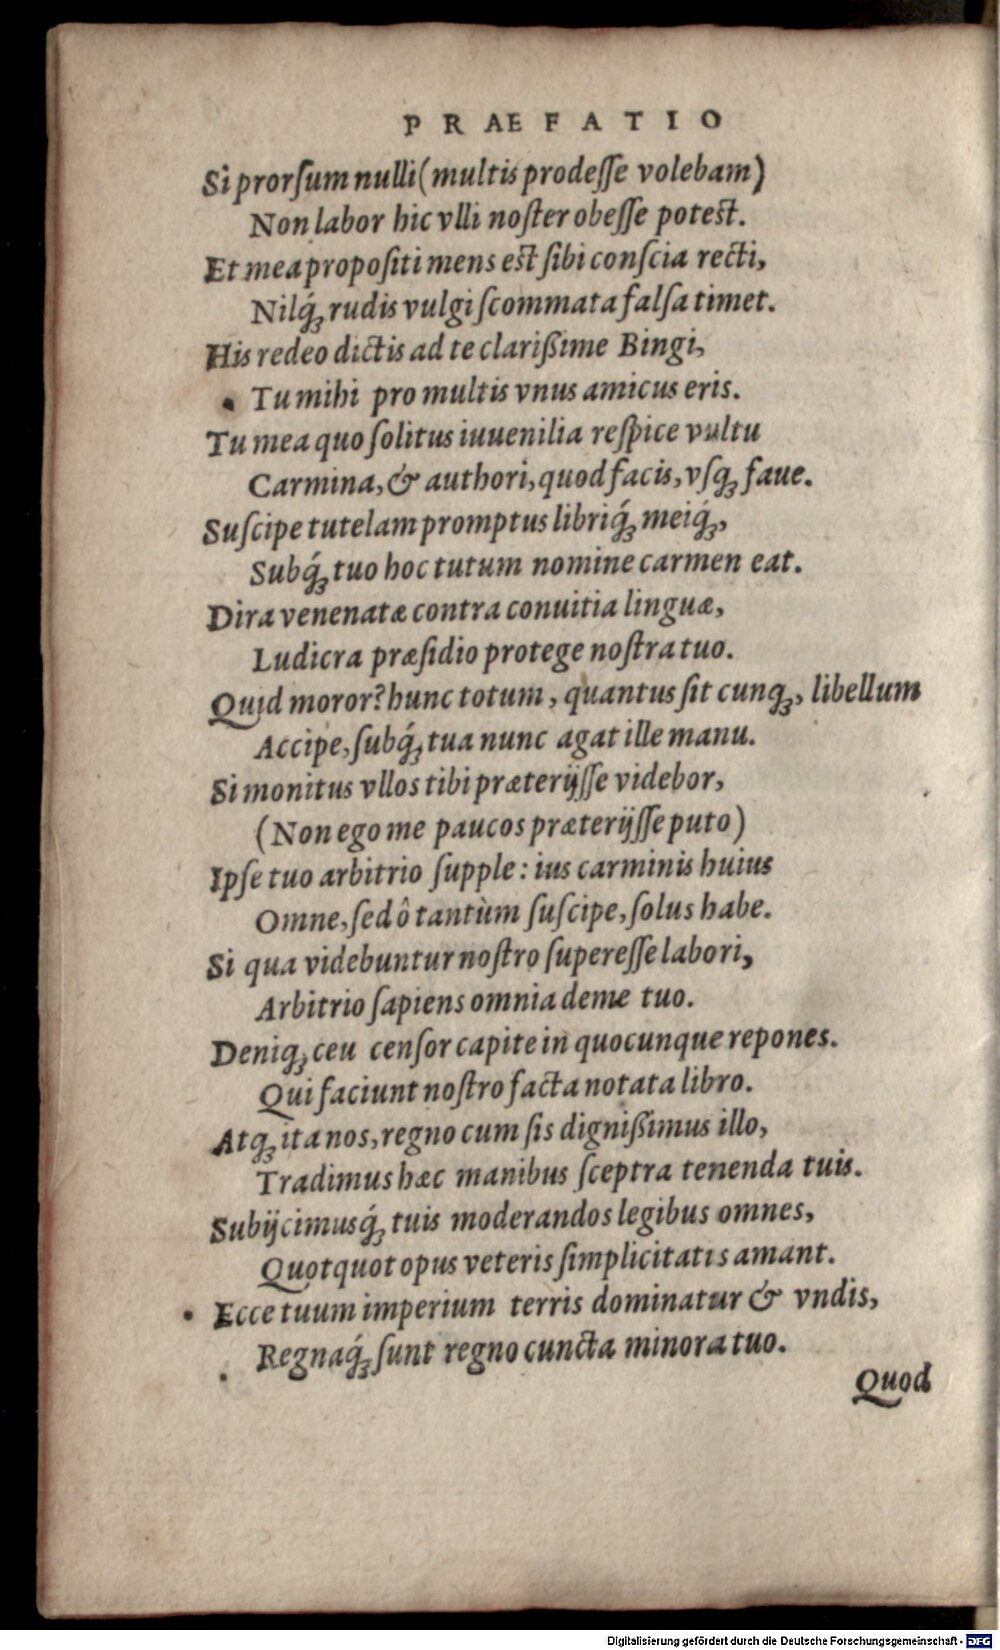 PRAEFATIO
Si prorſum nulli (multis prodeſſe volebam)
Non labor hic vlli noſter obeſſe poteſt.
Et mea propoſiti mens eſt ſibi conſcia recti,
Nilq́ꝫ rudis vulgi ſcommata falſa timet.
His redeo dictis ad te clarißime Bingi,
Tu mihi pro multis vnus amicus eris.
Tu mea quo ſolitus iuuenilia reſpice vultu
Carmina, & authori, quod facis, vſqꝫ faue.
Suſcipe tutelam promptus libriq́ꝫ meiq́ꝫ,
Subq́ꝫ tuo hoc tutum nomine carmen eat.
Dira venenatæ contra conuitia linguæ,
Ludicra præſidio protege noſtra tuo.
Quid moror? hunc totum, quantus ſit cunqꝫ, libellum
Accipe, ſubq́ꝫ tua nunc agat ille manu.
Si monitus vllos tibi præterijſſe videbor,
(Non ego me paucos præterijſſe puto)
Ipſe tuo arbitrio ſupple: ius carminis huius
Omne, ſed ô tantùm ſuſcipe, ſolus habe.
Si qua videbuntur noſtro ſupereſſe labori,
Arbitrio ſapiens omnia deme tuo.
Deniqꝫ ceu cenſor capite in quocunque repones.
Qui faciunt noſtro facta notata libro.
Atqꝫ ita nos, regno cum ſis dignißimus illo,
Tradimus hæc manibus ſceptra tenenda tuis.
Subijcimusq́ꝫ tuis moderandos legibus omnes,
Quotquot opus veteris ſimplicitatis amant.
Ecce tuum imperium terris dominatur & vndis,
Regnaq́ꝫ ſunt regno cuncta minora tuo.
Quod
Digitalisierung gefördert durch die Deutsche Forschungsgemeinschaft - DFG